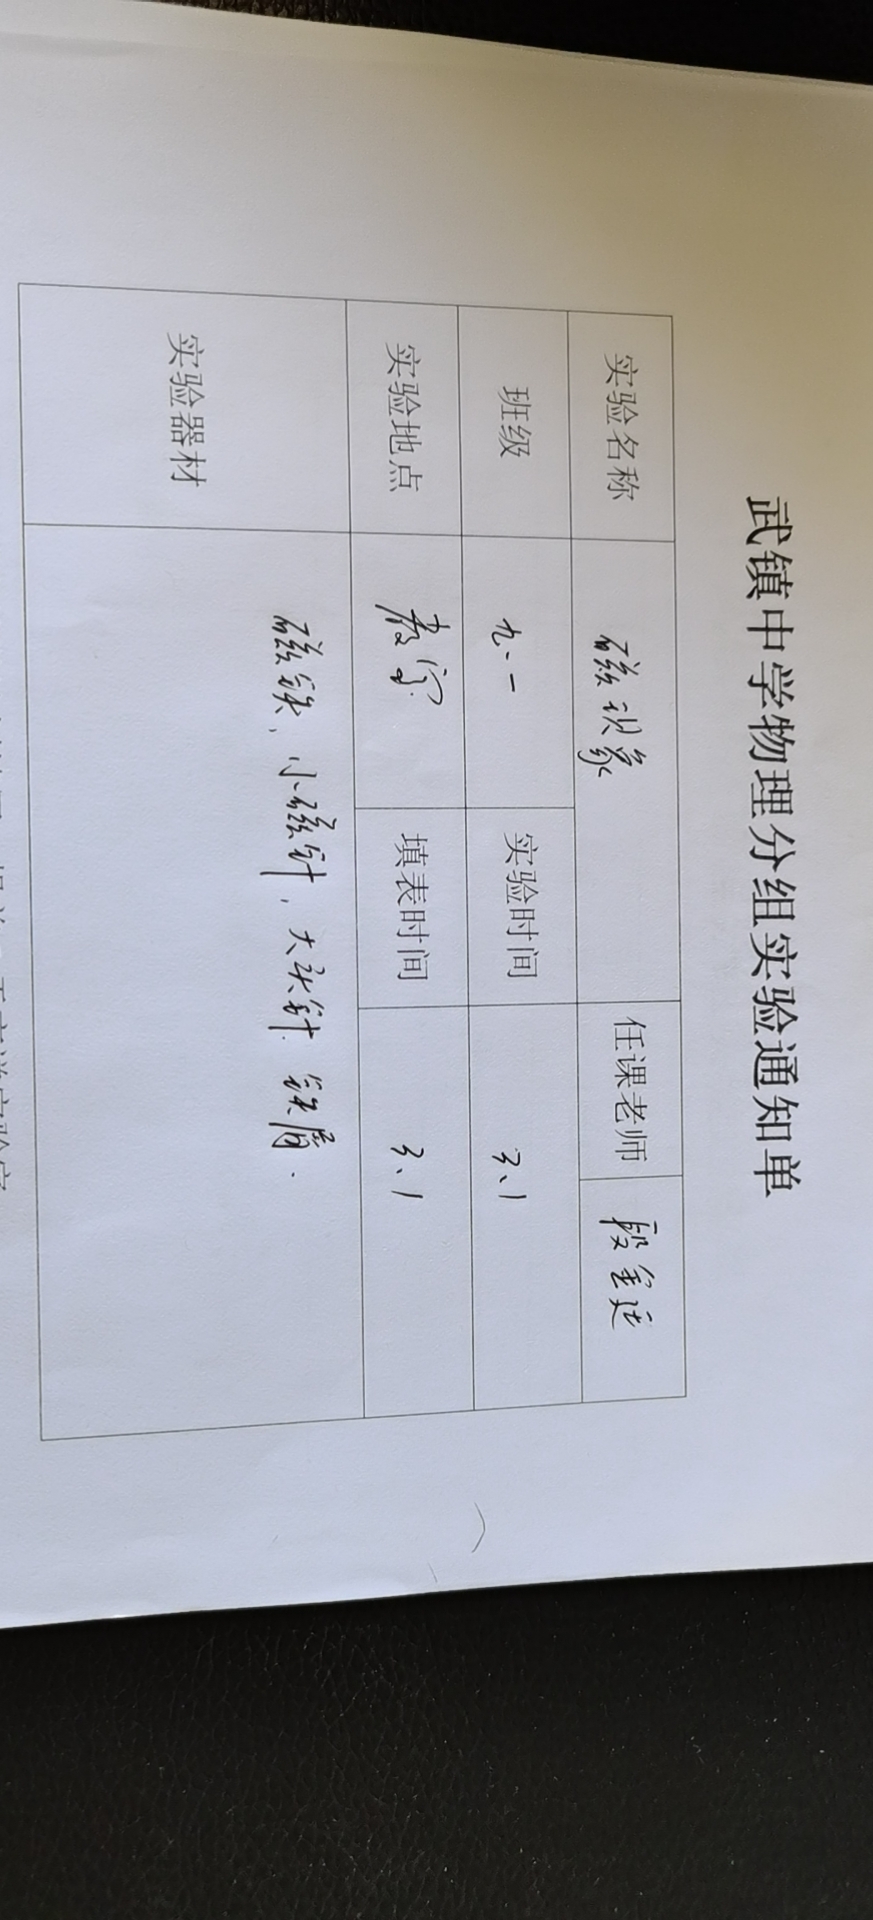 武镇中学物理分组实验通知单
实验名称 磁现象 任课老师 段金廷
班级 九、一 实验时间 3、1
实验地点 教室 填表时间 3、1
实验器材 磁铁，小磁针，大头针 铁屑．